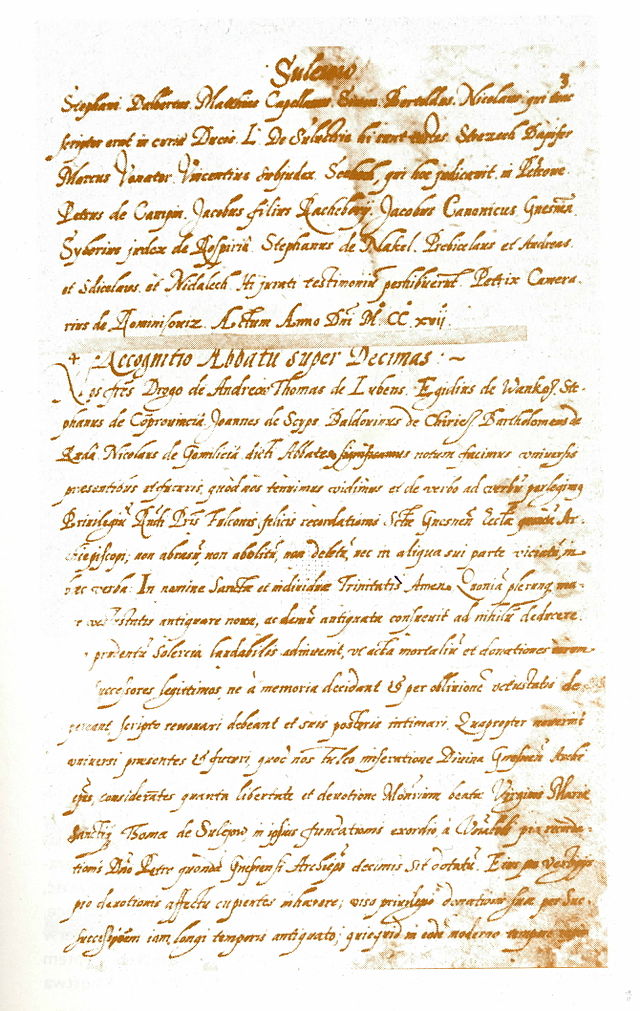 Suleiouo
3
Stephani Dalbertus. Matthius Capellanus. Simon. Bertoldus. Nicolaus, qui tunc
scriptor erat in curia Ducis. L. De Sulechia hi sunt testes. Dapifer
Marcus Vanator. Vincentius Subjudex. qui hoc judicavit in Petrone
Petrus de Jacobus filius Jacobus Canonicus Gnesneñ.
Syberius judex de Rospiria. Stephanus de Nakel. Prebiclaus et Andreas.
et Sdiclaus. et Nidalech. Hi jurati testimoniũ perhibuerũt. Petrix Camera-
rius de Actum Anno Dñi Mº CCº xvijº
+ Recognitio Abbatũ super Decimas : ~
os frẽs Drogo de Andreow Thomas de Lubens. Egidius de Ste-
phanus de Coprovinciã Joannes de Scyps Baldovinus de Bartholomeus de
Rudã. Nicolaus de Gamiliciã dicti Abbates significamus notum facimus universis
presentibus et futuris, quòd nos tenuimus vidimus et de verbo ad verbũ perlegimus
Privilegiũ Rñdi Pris Fulconis felicis recordationis Sctæ Gnesneñ Eccłæ quondã Ar-
chiepiscopi, non abrasũ, non abolitũ, non deletũ, nec in aliqua sui parte viciatũ, in
hæc verba. In nomine Sanctæ et individuæ Trinitatis Amen. Quoniã plerunq
vetustatis antiquare nova, ac demũ antiquata consuevit ad nihilũ deducere.
prudentũ Solercia laudabiles adinvenit, ut acta mortaliũ et donationes
successores legittimos, ne à memoria decidant & per oblivionẽ vetustatis de-
pereant scripto renovari debeant et suis posteris intimari. Quapropter noverint
universi præsentes & futuri, quòd nos Fulco miseratione Divina Gnesneñ Archi
epũs, considerãtes quanta libertate et devotione Monrium beatæ Virginis Mariæ
Sanctiq Thomæ de Sulejow, in ipsius fundationis exordio, à
tionis Dño Petro quondã Gnesnensi Archiepõ decimis sit dotatũ. Eius vestigijs
pio devotionis affectu cupientes inhærere; viso privilegio donationis suæ per suc-
successionem iam longi temporis antiquato; quicquid in eodẽ moderno tempore